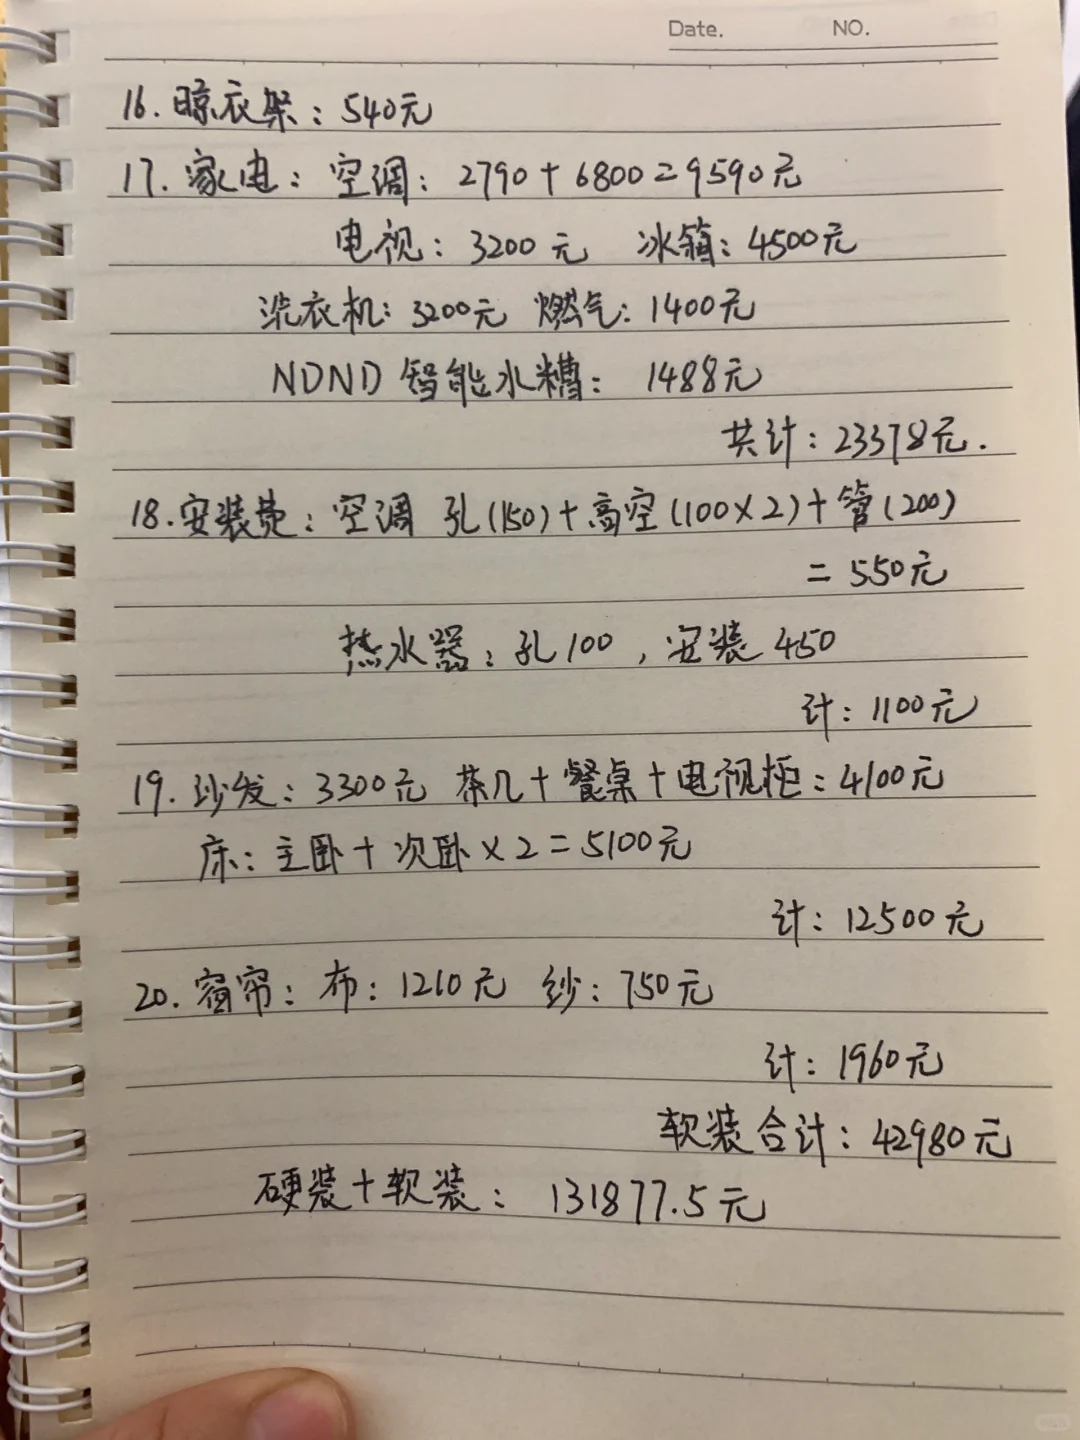 Date. NO.
16. 晾衣架：540元
17. 家电：空调：2790+6800=9590元
电视：3200元 冰箱：4500元
洗衣机：3200元 燃气：1400元
NDND 智能水槽：1488元
共计：23378元.
18.安装费：空调 孔(150)+高空(100×2)+管(200)
=550元
热水器：孔100，安装450
计：1100元
19. 沙发：3300元 茶几+餐桌+电视柜：4100元
床：主卧+次卧×2=5100元
计：12500元
20. 窗帘：布：1210元 纱：750元
计：1960元
软装合计：42980元
硬装+软装：131877.5元